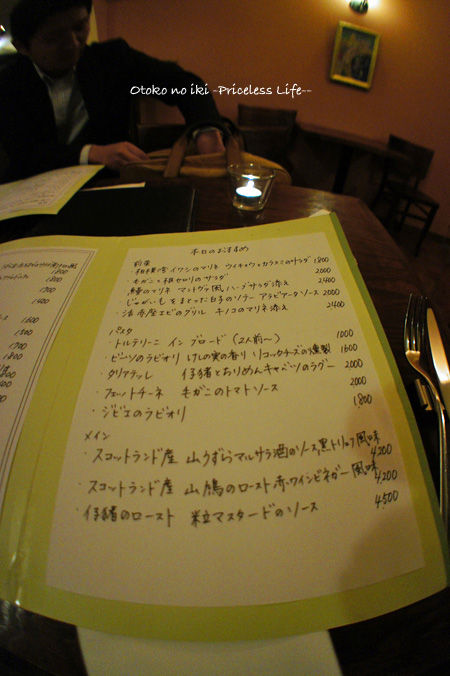 Otoko no iki -Priceless Life--
本日のおすすめ
前菜
・相模湾イワシのマリネ ウイキョウとカラスミのサラダ 1800
・毛ガニと根セロリのサラダ 2000
・鰻のマリネ マントヴァ風 ハーブサラダ添え 2400
・じゃがいもをまとった白子のソテー アラビアータソース 2000
・活 産エビのグリル キノコのマリネ添え 2400
パスタ
・トルテリーニ イン ブロード (2人前〜) 1000
・ビーツのラビオリ けしの実の香り リコッタチーズの燻製 1600
・タリアテッレ 仔猪とちりめんキャベツのラグー 2000
・フェットチーネ 毛ガニのトマトソース 2000
・ジビエのラビオリ 1,800
メイン
・スコットランド産 山うずらマルサラ酒のソース,黒トリュフ風味 4200
・スコットランド産 山鳩のロースト 赤ワインビネガー風味 4,200
・仔猪のロースト 粒マスタードのソース 4,500
1800
1700
1400
1500
1300
1700
1800